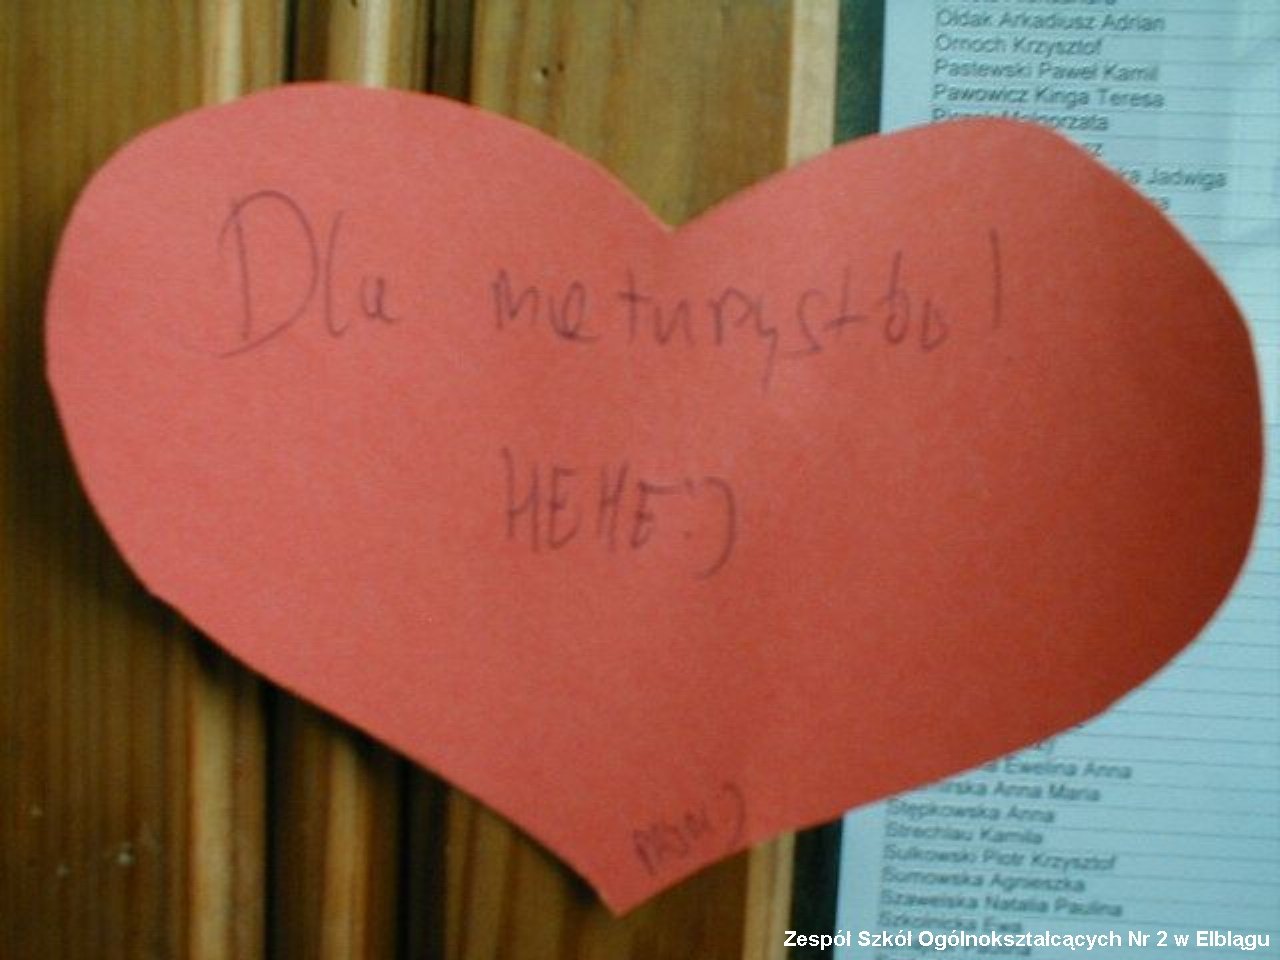 Ołdak Arkadiusz Adrian
Ornoch Krzysztof
Pastewski Paweł Kamil
Pawowicz Kinga Teresa
Jadwiga
Dla maturzystów!
HEHE:)
Ewelina Anna
Anna Maria
Stępkowska Anna
Strechlau Kamila
Sulkowski Piotr Krzysztof
Sumowska Agnieszka
Szawelska Natalia Paulina
Szkolnicka Ewa
Zespół Szkół Ogólnokształcących Nr 2 w Elblągu